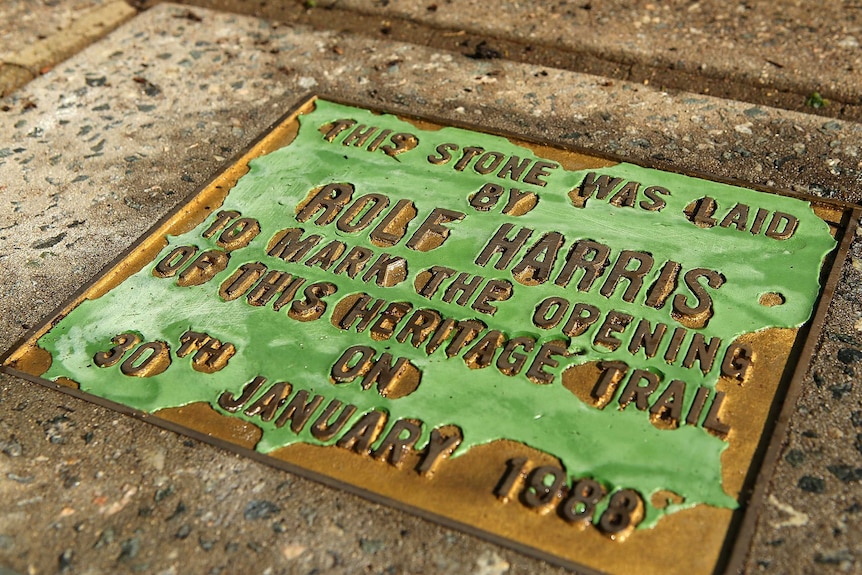 THIS STONE WAS LAID
BY
ROLF HARRIS
TO MARK THE OPENING
OF THIS HERITAGE TRAIL
ON
30TH JANUARY 1988